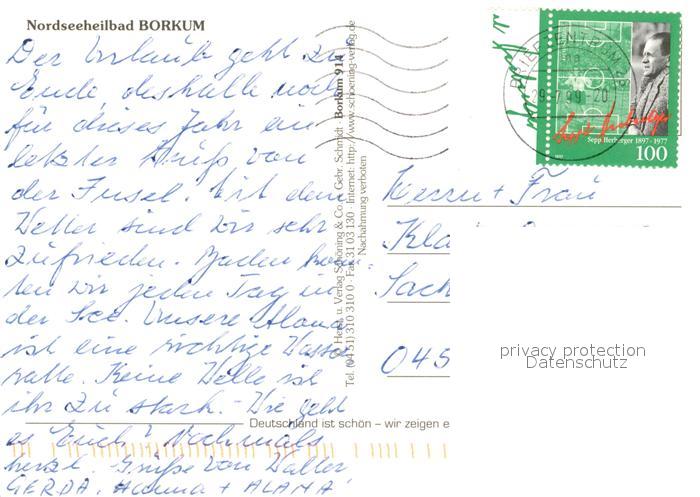 Nordseeheilbad BORKUM
Der Urlaub geht zu
Ende, deshalb noch
für dieses Jahr ein
letzter Gruß von
der Insel. Mit dem
Wetter sind wir sehr
zufrieden. Baden konn-
ten wir jeden Tag in
der See. Unsere Alana
ist eine richtige Wasser
ratte. Keine Welle ist
ihr zu stark. - Wie geht
es Euch? Nochmals
herzl. Grüße von Walter
GERDA, + ALANA
© Herst. u. Verlag Schöning & Co + Gebr. Schmidt Borkum 914
Tel. (04 51) 310 310 0 · Fax 31 03 130 · Internet: http://www.schoening-verlag.de
Nachahmung verboten
Deutschland ist schön – wir zeigen e
BRIEFZENTRUM
29.-7.99.-
Sepp Herberger
Sepp Herberger 1897 - 1977
100
Herrn + Frau
Kla
Sach
045
privacy protection
Datenschutz